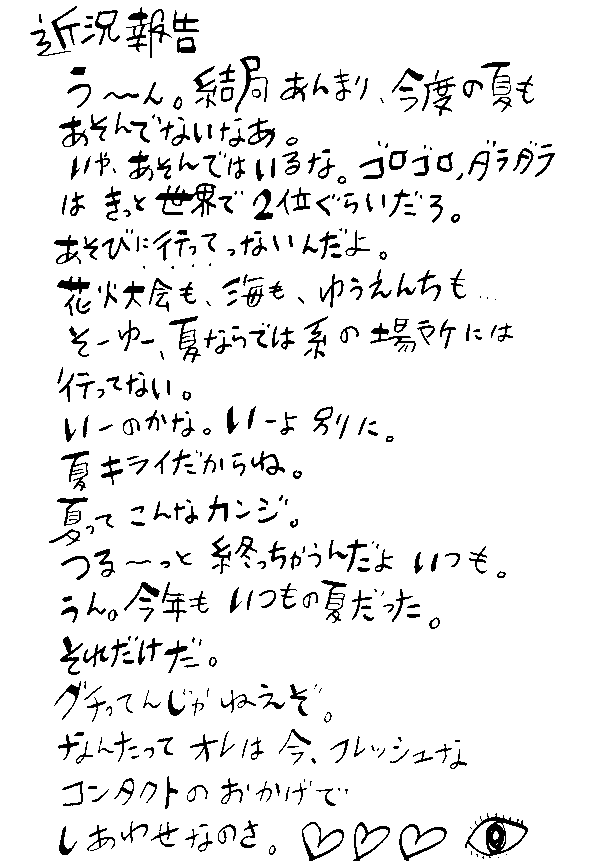 近況報告
う〜ん。結局あんまり、今度の夏も
あそんでないなあ。
いや、あそんではいるな。ゴロゴロ,ダラダラ
は きっと世界で2位ぐらいだろ。
あそびに行ってってないんだよ。
花火大会も、海も、ゆうえんちも…
そーゆー、夏ならでは系の場所には
行ってない。
いーのかな。いーよ別に。
夏キライだからね。
夏ってこんなカンジ。
つる〜っと終っちゃうんだよいつも。
うん。今年もいつもの夏だった。
それだけだ。
グチってんじゃねえぞ。
なんたってオレは今、フレッシュな
コンタクトのおかげで
しあわせなのさ。♡♡♡